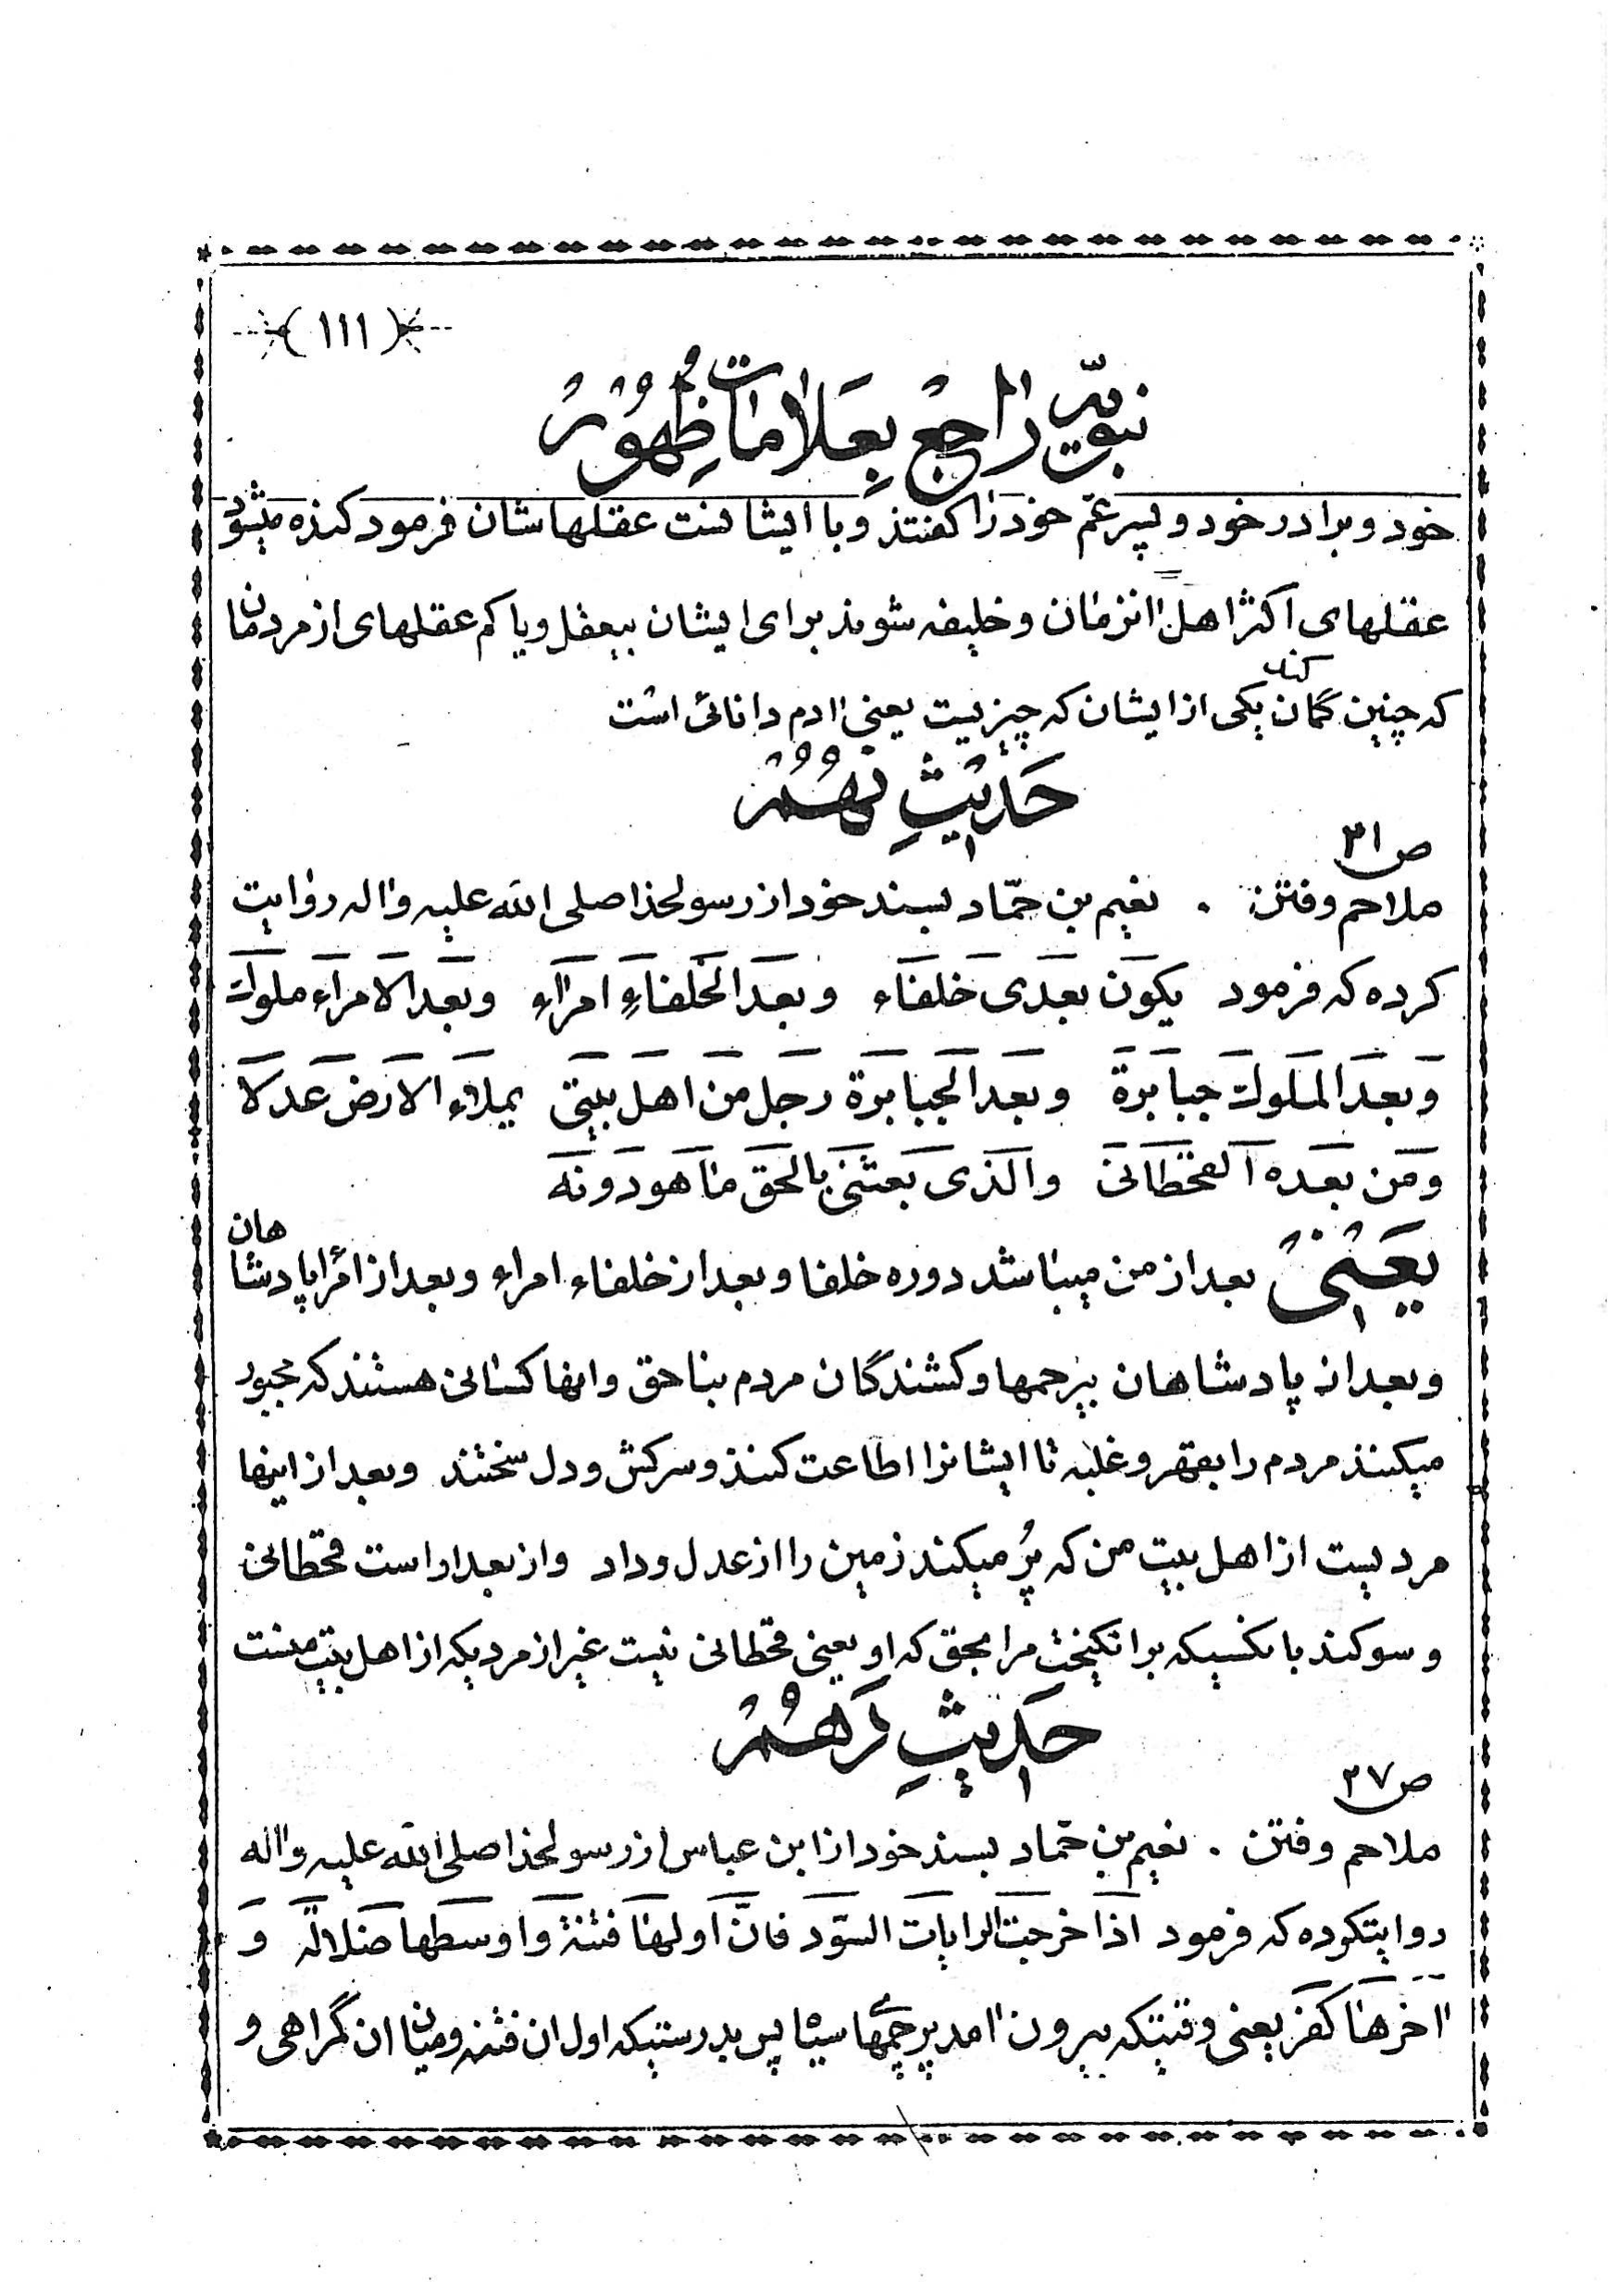 (١١١)
نبویّه راجع بعلامات ظهور
خود و برادر خود و پسر عمّ خود را گفتند و با ایشانست عقلهاشان فرمود کنده میشود
عقلهای اکثر اهل انزمان و خلیفه شوند برای ایشان بیعقل و یا کم عقلهای از مردمان
که چنین گمان کند یکی از ایشان که چیزیست یعنی ادم دانائی است
حدیث نهم
ص ٢١
ملاحم و فتن . نعیم بن حمّاد بسند خود از رسولخدا صلی الله علیه واله روایت
کرده که فرمود یکون بعدی خلفاء و بعد الخلفاء امراء و بعد الامراء ملوك
و بعد الملوك جبابرة و بعد الجبابرة رجل من اهل بیتی یملاء الارض عدلا
و من بعده القحطانی والذی بعثنی بالحق ما هو دونه
یعنی بعد از من میباشد دوره خلفا و بعد از خلفاء امراء و بعد از امرا پادشاهان
و بعد از پادشاهان بیرحمها و کشندگان مردم بناحق و انها کسانی هستند که مجبور
میکنند مردم را بقهر و غلبه تا ایشانرا اطاعت کنند و سرکش و دل سختند و بعد از اینها
مردیست از اهل بیت من که پُر میکند زمین را از عدل و داد و از بعد او است قحطانی
و سوکند بانکسیکه برانکیخت مرا بحق که او یعنی قحطانی نیست غیر از مردیکه از اهل بیت منست
حدیث دهم
ص ٢٧
ملاحم و فتن . نعیم بن حمّاد بسند خود از ابن عباس از رسولخدا صلی الله علیه واله
روایتکرده که فرمود اذا خرجت الرایات السّود فانّ اولها فتنة و اوسطها ضلالة و
اخرها کفر یعنی وقتیکه بیرون امد پرچمهای سیاه پس بدرستیکه اول ان فتنه و میان ان گمراهی و